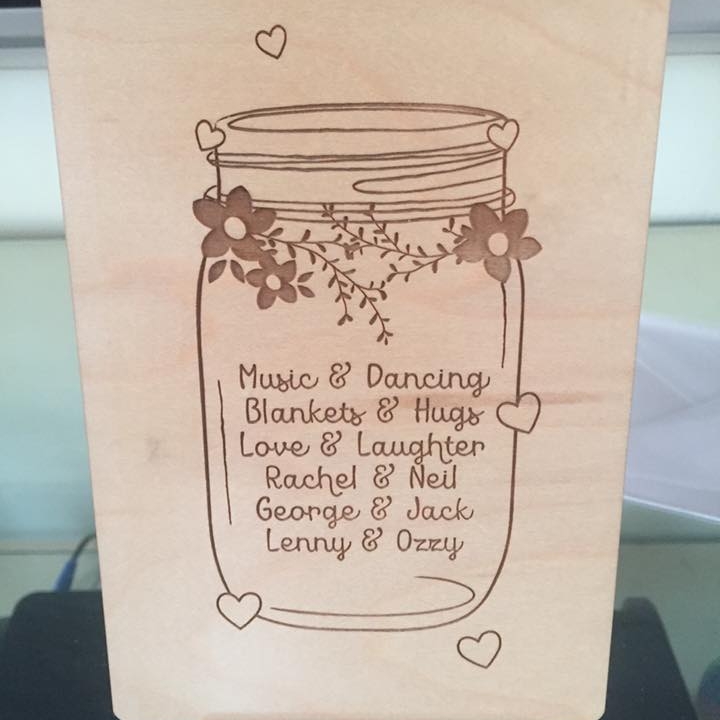 Music & Dancing
Blankets & Hugs
Love & Laughter
Rachel & Neil
George & Jack
Lenny & Ozzy